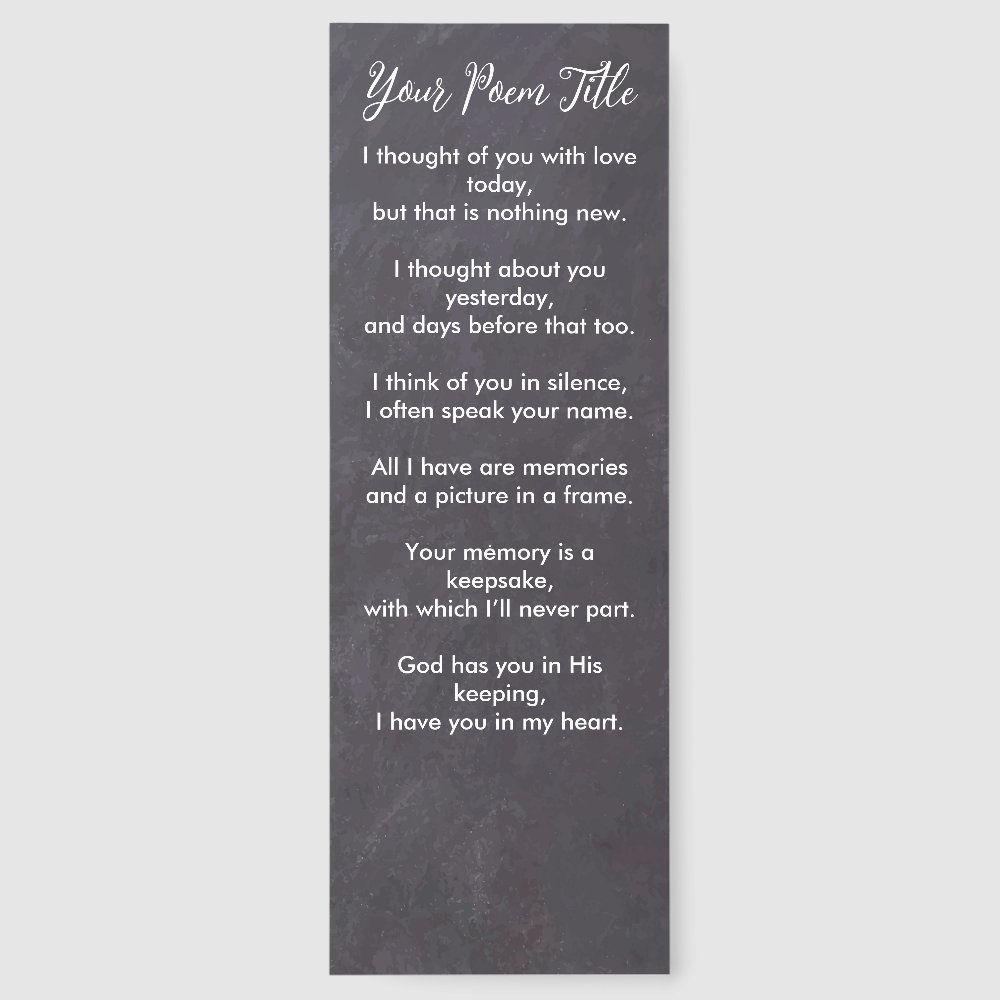 Your Poem Title
I thought of you with love
today,
but that is nothing new.
I thought about you
yesterday,
and days before that too.
I think of you in silence,
I often speak your name.
All I have are memories
and a picture in a frame.
Your memory is a
keepsake,
with which I’ll never part.
God has you in His
keeping,
I have you in my heart.